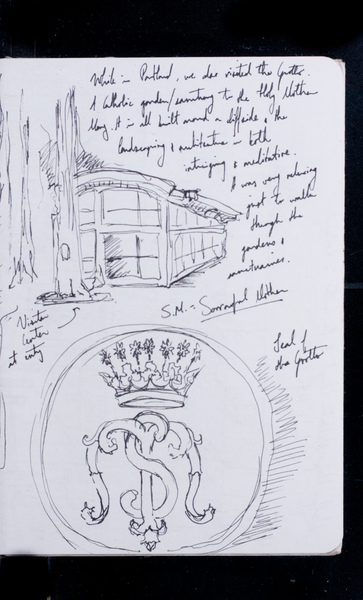 While in Portland, we also visited the Grotto.
A Catholic garden/sanctuary to the Holy Mother
Mary. It is all built around a cliffside & the
landscaping & architecture is both
intriguing & meditative.
It was very relaxing
just to walk
through the
gardens &
sanctuaries.
S.M. = Sorrowful Mother
Visitor
Center
at entry
Seal of
the Grotto